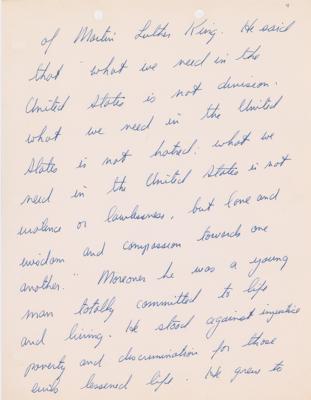 of Martin Luther King. He said
that "what we need in the
United States is not division.
what we need in the United
States is not hatred: what we
need in the United States is not
violence or lawlessness, but love and
wisdom and compassion towards one
another." Moreover he was a young
man totally committed to life
and living. He stood against injustice
poverty and discrimination for those
evils lessened life. He grew to